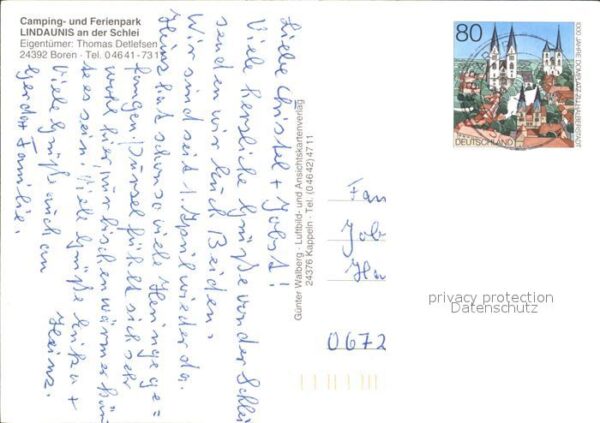 Camping- und Ferienpark
LINDAUNIS an der Schlei
Eigentümer: Thomas Detlefsen
24392 Boren - Tel. 04641-7317
Liebe Christel + Jobst!
Viele herzliche Grüße von der Schlei
senden wir Euch Beiden.
Wir sind seit 1. April wieder da.
Heinz hat schon so viele Heringe ge=
fangen. Pünsel fühlt sich sehr
wohl hier, nur bischen wärmer kön
te es sein. Viele Grüße Erika +
Heinz.
Viele Grüße auch an
Gerd + Familie.
Günter Walberg · Luftbild- und Ansichtskartenverlag
24376 Kappeln · Tel. (04642) 4711
80
DEUTSCHLAND
1000 JAHRE DOMPLATZ ZU HALBERSTADT
Fam
Job
Ha
0672
privacy protection
Datenschutz